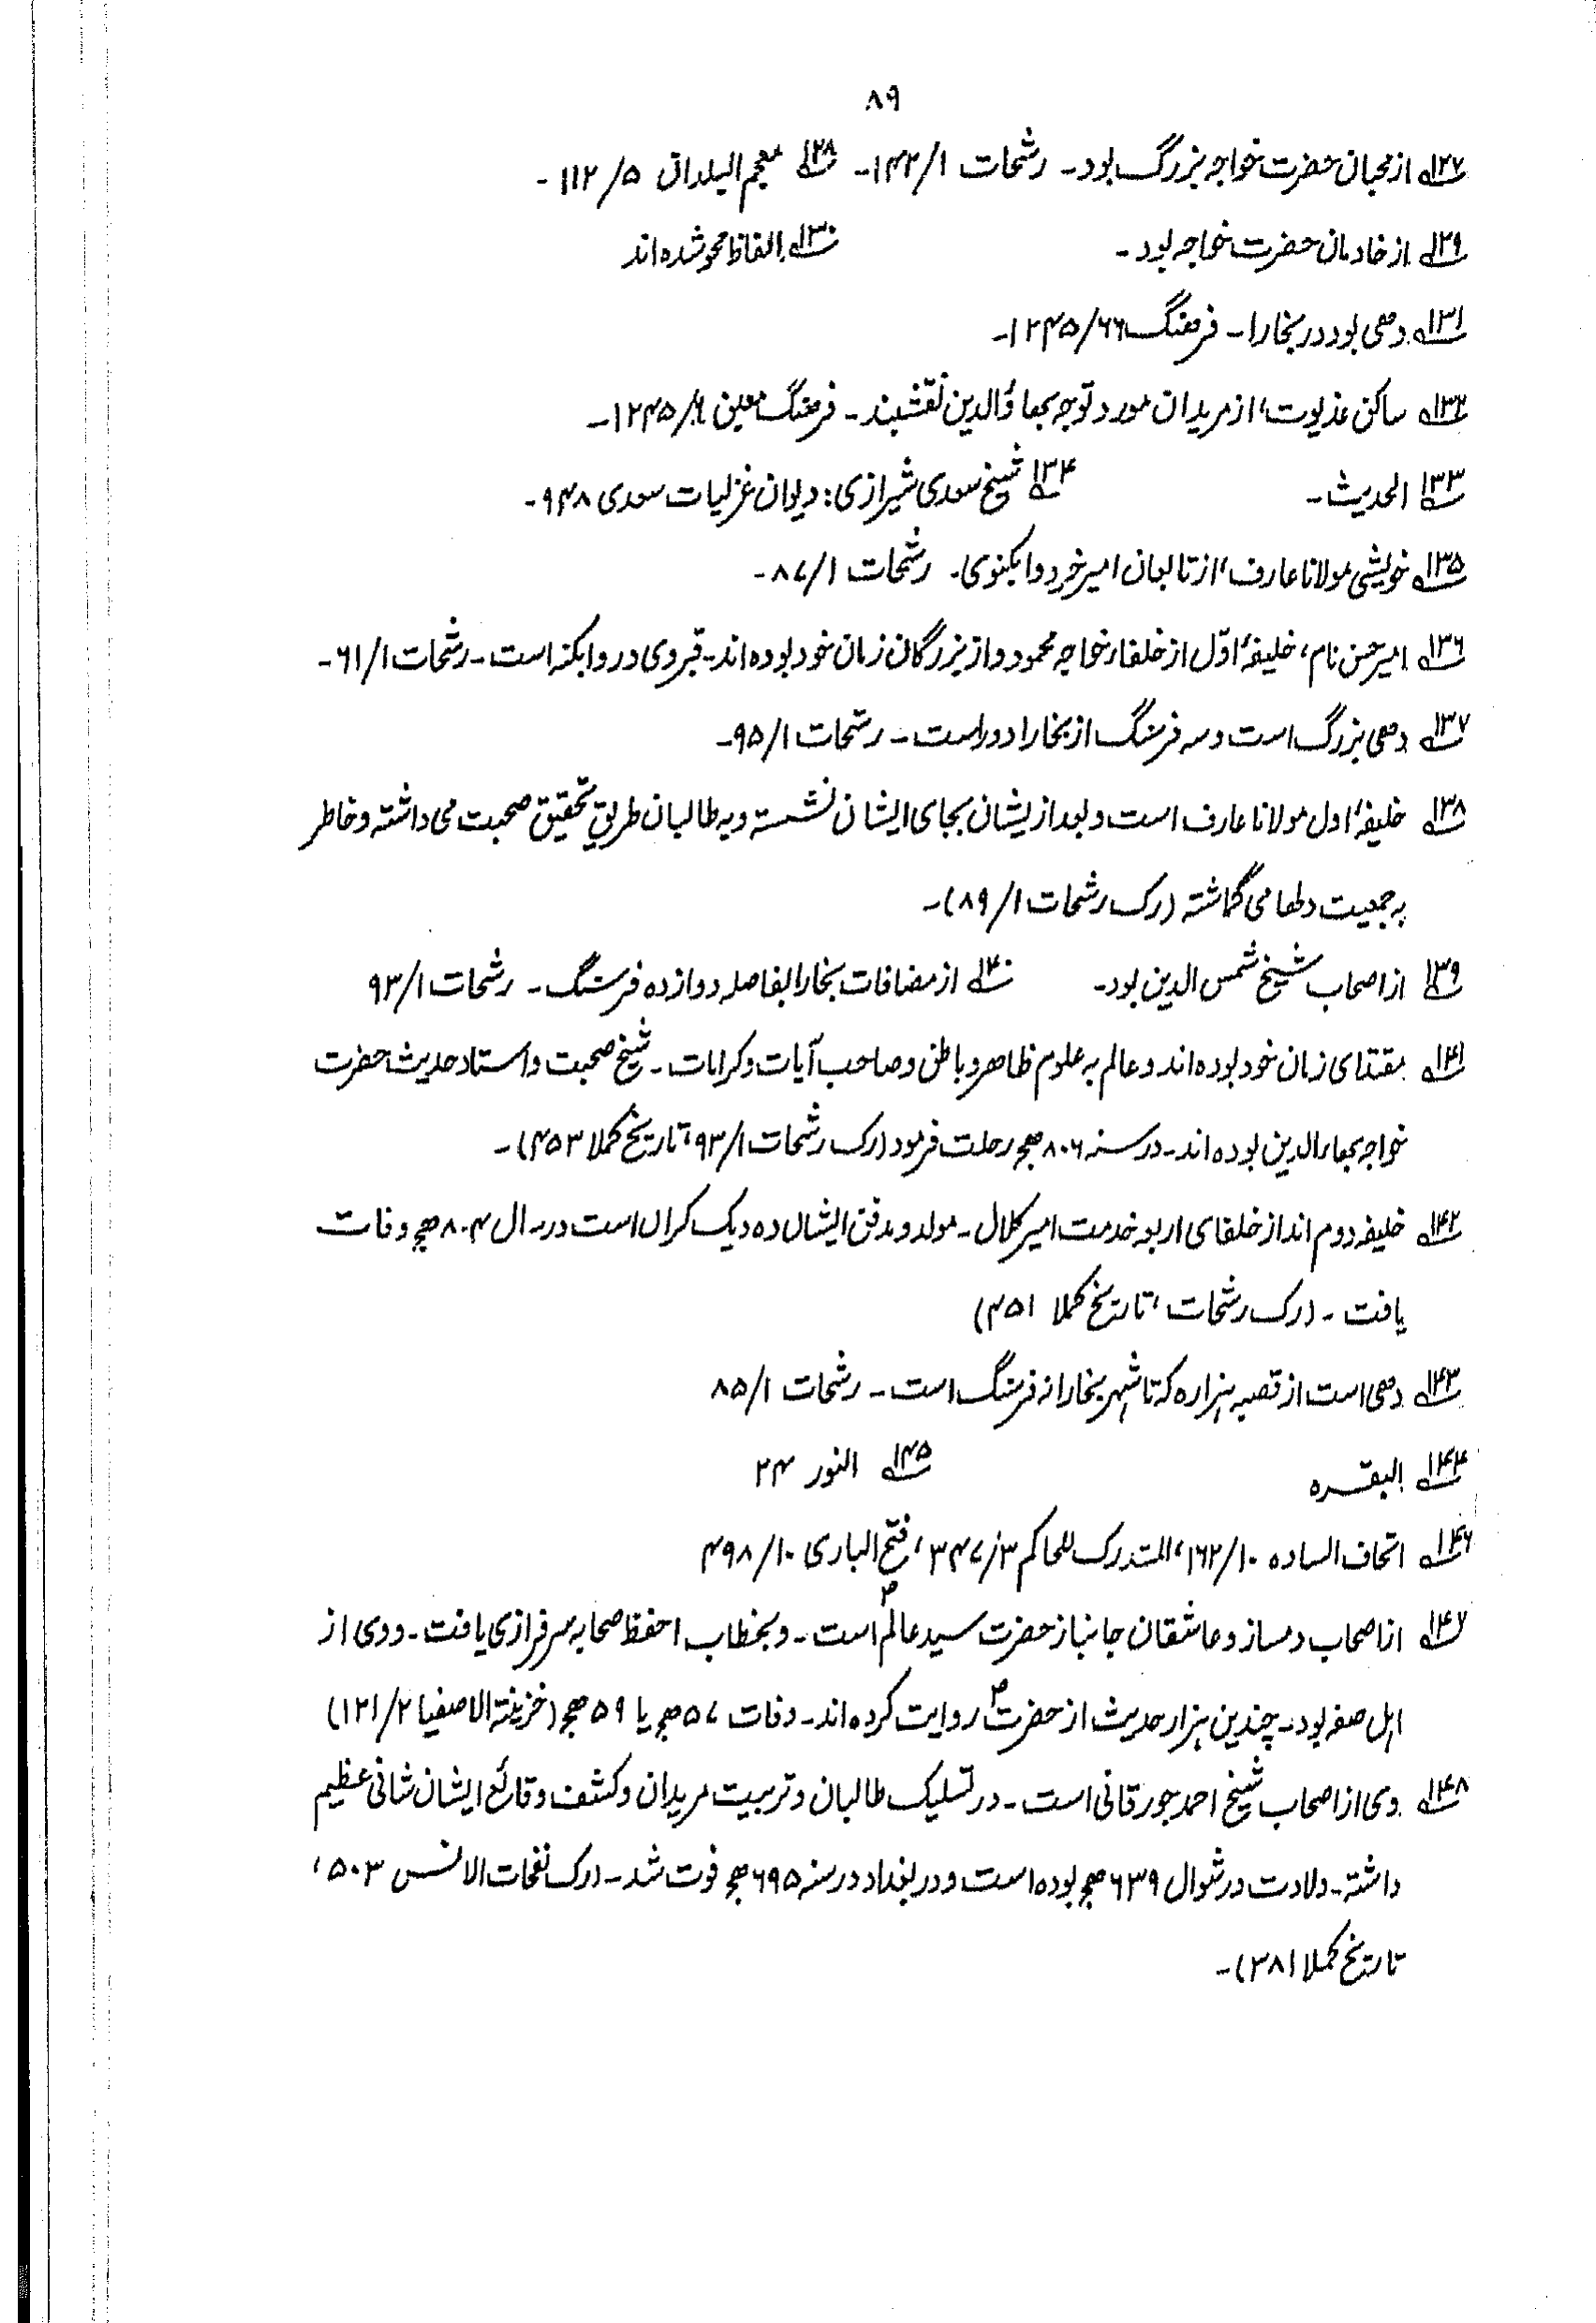 ۸۹
۱۲۷ از محبان حضرت خواجه بزرگ بود۔ رشحات ۱/۱۴۲۔ ۱۲۸ معجم البلدان ۵/۱۱۲۔
۱۲۹ از خادمان حضرت خواجه بود۔ ۱۳۰ الفاظ محو شده اند
۱۳۱ دهی بود در بخارا۔ فرهنگ ۶۶/۱۲۴۵۔
۱۳۲ ساکن غدیوت، از مریدان مورد توجه بهاؤالدین نقشبند۔ فرهنگ معین ۶/۱۲۴۵۔
۱۳۳ الحدیث۔ ۱۳۴ شیخ سعدی شیرازی: دیوان غزلیات سعدی ۹۴۸۔
۱۳۵ خویشی مولانا عارف، از تابعان امیر خورد وابکنوی۔ رشحات ۱/۸۷۔
۱۳۶ امیر حسن نام، خلیفۂ اوّل از خلفاء خواجه محمود و از بزرگان زمان خود بوده اند۔ قبر وی در وابکنه است۔ رشحات ۱/۶۱۔
۱۳۷ دهی بزرگ است و سه فرسنگ از بخارا دور است۔ رشحات ۱/۹۵۔
۱۳۸ خلیفۂ اول مولانا عارف است و بعد از یشان بجای ایشان نشسته و به طالبان طریقِ تحقیق صحبت می داشته و خاطر
به جمعیت دلها می گماشته (رک رشحات ۱/۸۹)۔
۱۳۹ از اصحاب شیخ شمس الدین بود۔ ۱۴۰ از مضافات بخارا بفاصله دوازده فرسنگ۔ رشحات ۱/۹۳
۱۴۱ مقتدای زمان خود بوده اند و عالم به علوم ظاهر و باطن و صاحب آیات و کرامات۔ شیخ صحبت و استاد حدیث حضرت
خواجه بهاءالدین بوده اند۔ در سنه ۸۰۶ هج رحلت فرمود (رک رشحات ۱/۹۳، تاریخ کملا ۴۵۳)۔
۱۴۲ خلیفه دوم اند از خلفای اربعه خدمت امیر کلال۔ مولد و مدفن ایشان ده دیک کران است در سال ۸۰۴ هج وفات
یافت۔ (رک رشحات، تاریخ کملا ۴۵۱)
۱۴۳ دهی است از قصبه هزاره که تا شهر بخارا نه فرسنگ است۔ رشحات ۱/۸۵
۱۴۴ البقره ۱۴۵ النور ۲۴
۱۴۶ اتحاف الساده ۱۰/۱۶۲، المستدرک للحاکم ۳/۳۴۷، فتح الباری ۱۰/۴۹۸
۱۴۷ از اصحاب دمساز و عاشقان جانباز حضرت سید عالمؐ است۔ و بخطاب احفظ صحابه سرفرازی یافت۔ و وی از
اہل صفه بود۔ چندین ہزار حدیث از حضرتؐ روایت کرده اند۔ وفات ۵۷ هج یا ۵۹ هج (خزینة الاصفیا ۲/۱۲۱)
۱۴۸ وی از اصحاب شیخ احمد جورقانی است۔ در تسلیک طالبان و تربیت مریدان و کشف وقائع ایشان شانی عظیم
داشته۔ ولادت در شوال ۶۳۹ هج بوده است و در بغداد در سنه ۶۹۵ هج فوت شد۔ (رک نفحات الانس ۵۰۳،
تاریخ کملا ۳۸۱)۔